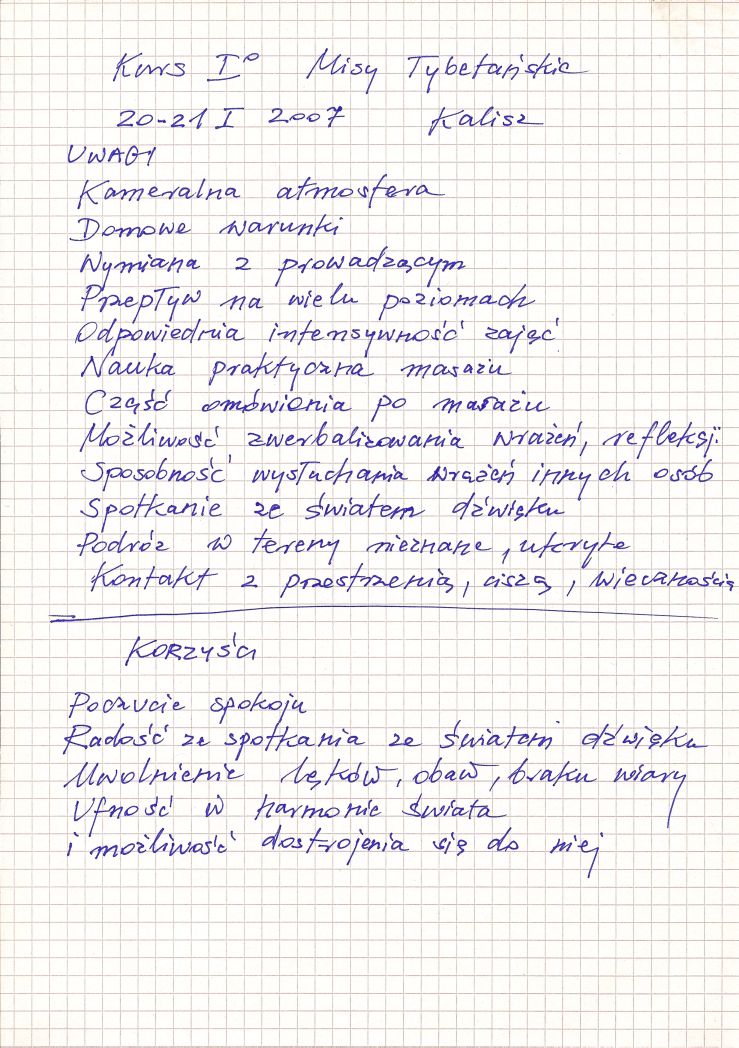 Kurs I° Misy Tybetańskie
20-21 I 2007 Kalisz
UWAGI
Kameralna atmosfera
Domowe warunki
Wymiana z prowadzącym
Przepływ na wielu poziomach
Odpowiednia intensywność zajęć
Nauka praktyczna masażu
Część omówienia po masażu
Możliwość zwerbalizowania wrażeń, refleksji
Sposobność wysłuchania wrażeń innych osób
Spotkanie ze światem dźwięku
Podróż w tereny nieznane, ukryte
Kontakt z przestrzenią, ciszą, wiecznością
KORZYŚCI
Poczucie spokoju
Radość ze spotkania ze światem dźwięku
Uwolnienie lęków, obaw, braku wiary
Ufność w harmonie świata
i możliwość dostrojenia się do niej